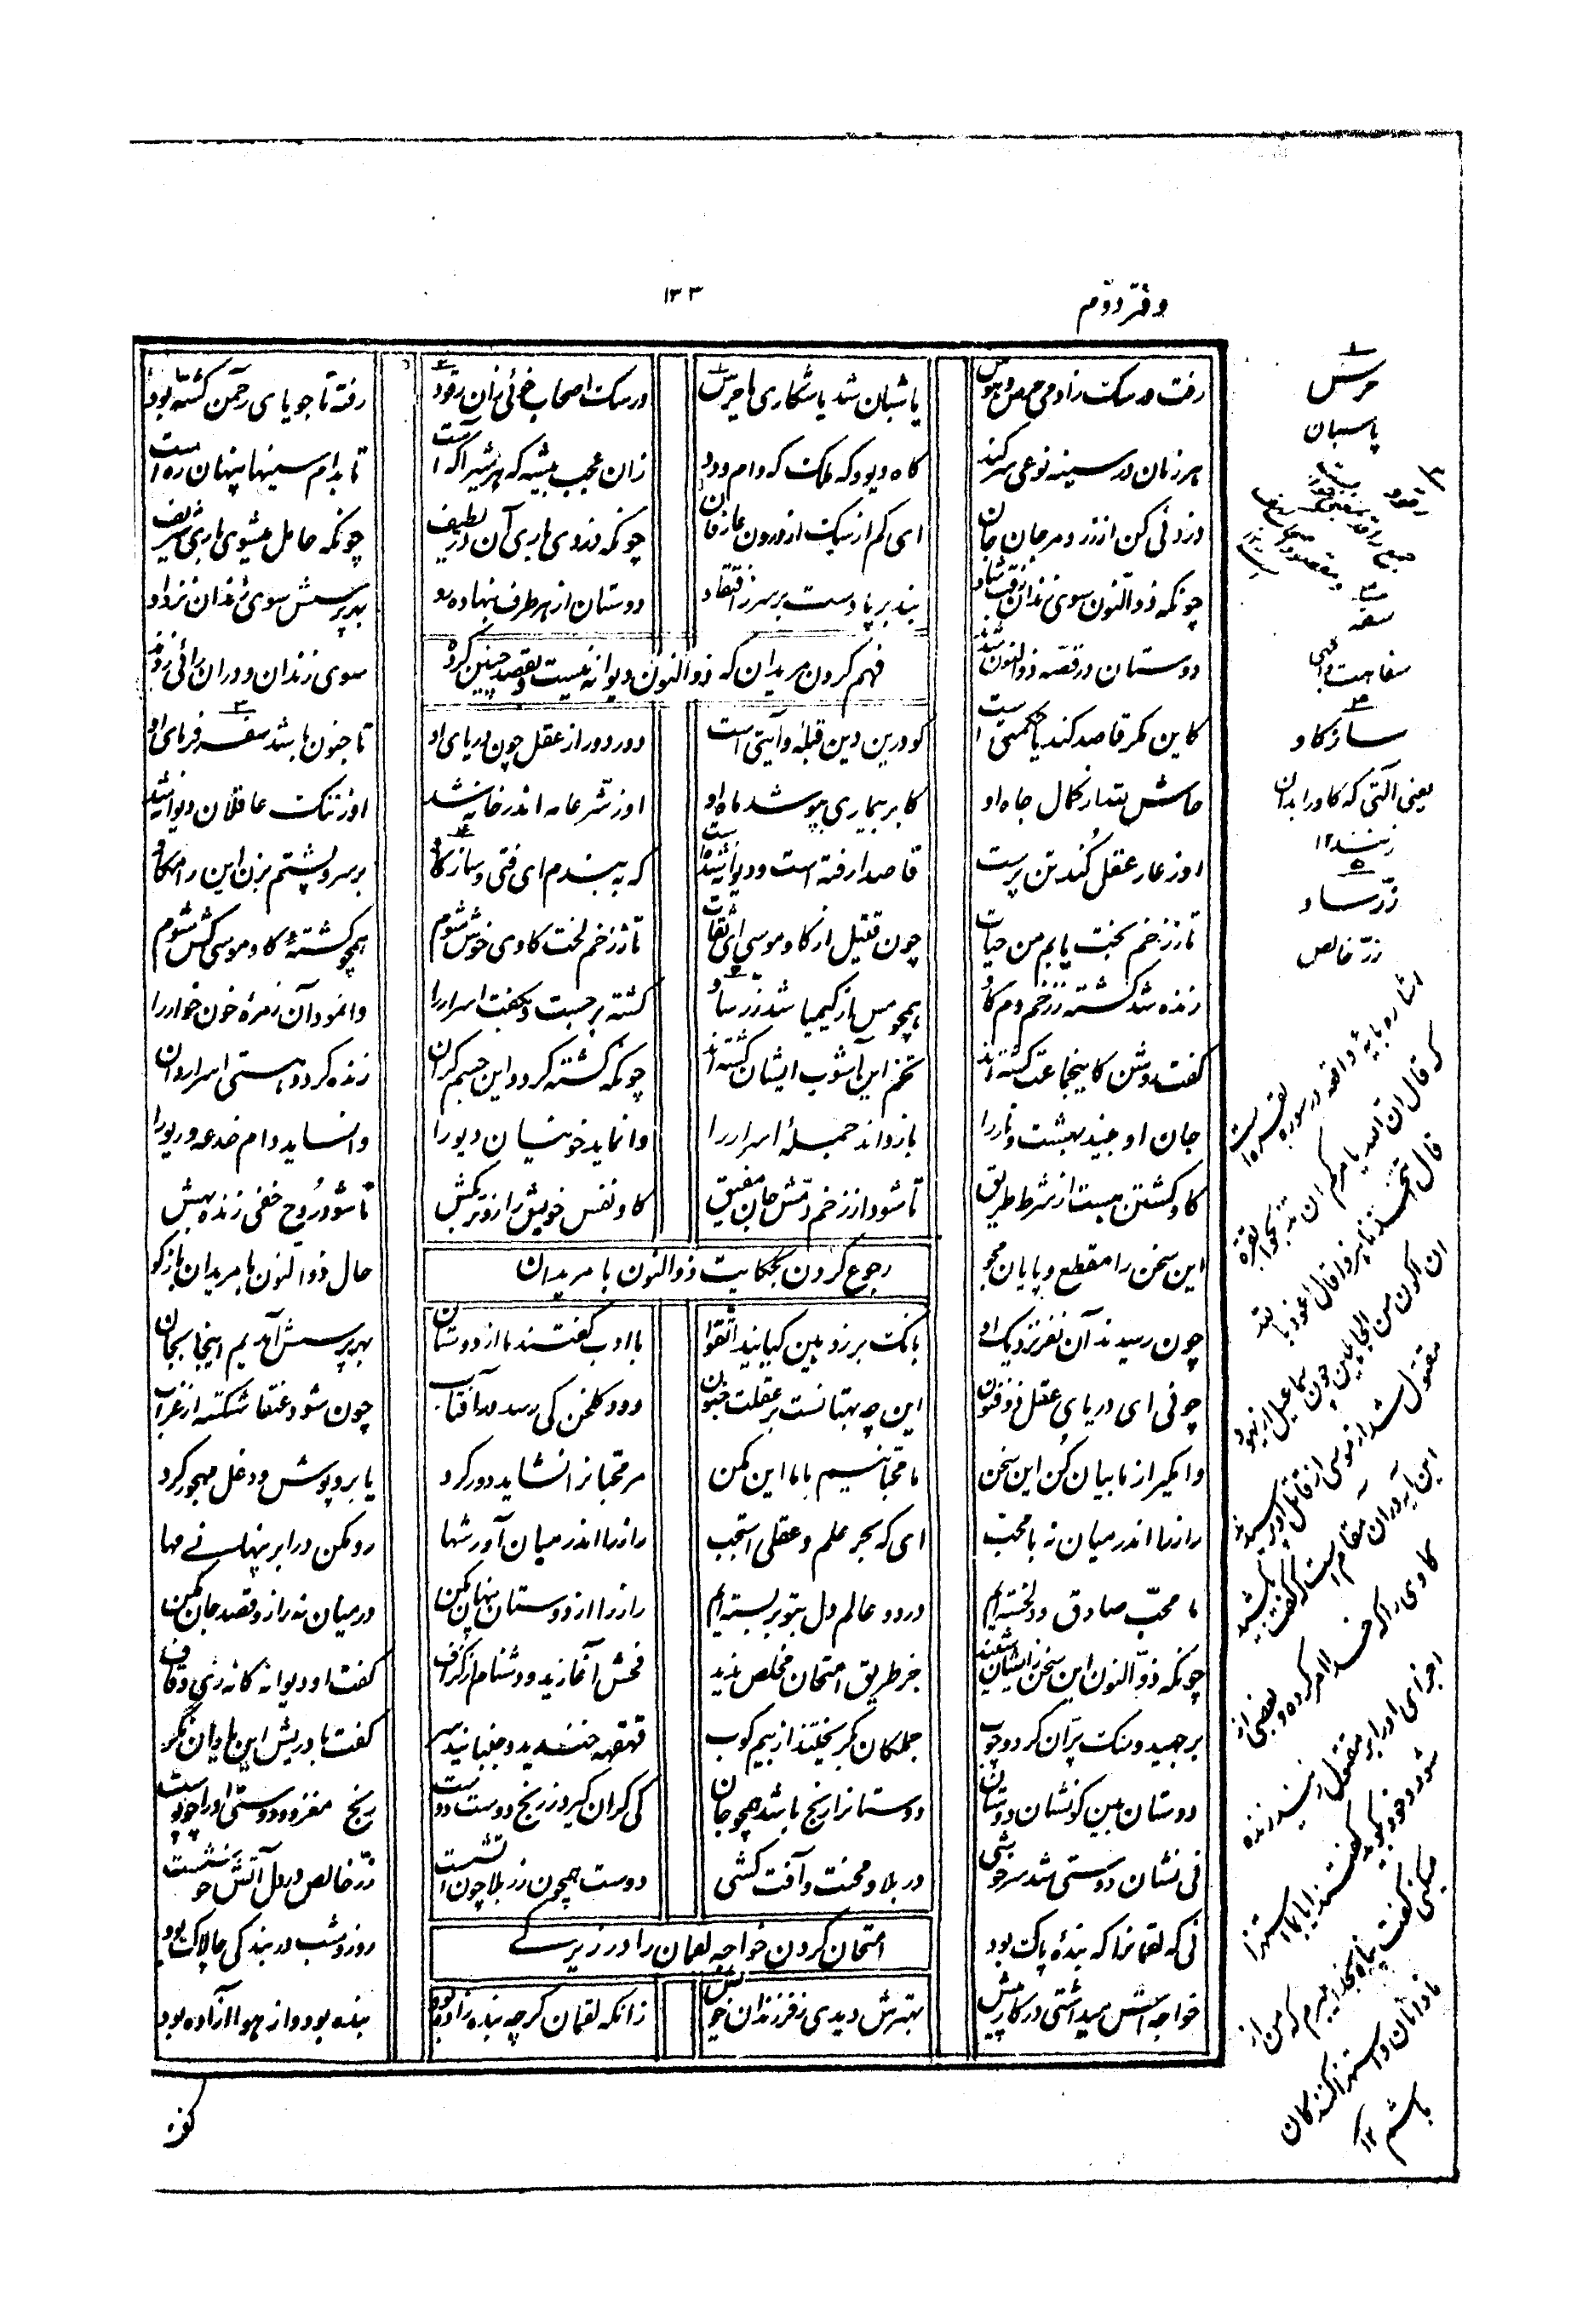 دفتر دوم
۱۳۳
رفت در سگ زادمی حرص و هوس
یا شبان شد یا شکاری یا حرس
در سگ اصحاب خوئی زان رقود
رفته تا جویای رحمن گشته بود
هر زمان در سینه نوعی سر کند
گاه دیو و گه ملک گه دام و دد
زان عجب بیشه که هر شیر آگه است
تا بدام سینها پنهان ره است
دزدئی کن از زر و مرجان جان
ای کم از سگ از درون عارفان
چونکه دزدی باری آن در لطیف
چونکه حامل میشوی باری شریف
چونکه ذوالنون سوی زندان رفت شاد
بند بر پا دست بر سر ز افتقاد
دوستان از هر طرف بنهاده رو
بهر پرسش سوی زندان نزد او
فهم کردن مریدان که ذوالنون دیوانه نیست و بقصد چنین کرده
دوستان در قصه ذوالنون شدند
سوی زندان و دران رائی زدند
کاین مگر قاصد کند یا حکمتی است
کو درین دین قبله و آیتی است
دور دور از عقل چون دریای او
تا جنون باشد سفه فرمای او
حاش لله از کمال جاه او
کابر بیماری بپوشد ماه او
او ز شر عامه اندر خانه شد
او ز ننگ عاقلان دیوانه شد
او ز عار عقل کند تن پرست
قاصدا رفته است و دیوانه شدست
که ببندم ای فتی و ساز گاو
بر سر و پشتم بزن این را مکاو
تا ز زخم لخت یابم من حیات
چون قتیل از گاو موسی ای ثقات
تا ز زخم لخت گاوی خوش شوم
همچو کشتهٔ گاو موسی گش شوم
زنده شد کشته ز زخم دم گاو
همچو مس از کیمیا شد زر ساو
کشته بر جست و بگفت اسرار را
وانمود آن زمرهٔ خون خوار را
گفت روشن کاینجماعت کشته اند
تخم این آشوب ایشان کشته اند
چونکه کشته گردد این جسم گران
زنده گردد هستی اسراردان
جان او بیند بهشت و نار را
باز داند جملهٔ اسرار را
وا نماید خونیان دیو را
وا نماید دام خدعه و ریو را
گاو کشتن هست از شرط طریق
تا شود از زخم دمش جان مفیق
گاو نفس خویش را زوتر بکش
تا شود روح خفی زنده بهش
رجوع کردن بحکایت ذوالنون با مریدان
این سخن را مقطع و پایان مجو
حال ذوالنون با مریدان باز گو
چون رسیدند آن نفر نزدیک او
بانگ بر زد هین کیانید اتقوا
با ادب گفتند ما از دوستان
بهر پرسش آمدیم اینجا بجان
چونی ای دریای عقل ذوفنون
این چه بهتانست بر عقلت جنون
دود گلخن کی رسد در آفتاب
چون شود عنقا شکسته از غراب
وا مگیر از ما بیان کن این سخن
ما محبانیم با ما این مکن
مر محبانرا نشاید دور کرد
یا بروپوش و دغل مهجور کرد
راز را اندر میان نه با محب
ای که بحر علم و عقلی استجب
راز را اندر میان آور شها
رو مکن در ابر پنهانی مها
ما محب صادق و دلخسته ایم
در دو عالم دل بتو بر بسته ایم
راز را از دوستان پنهان مکن
در میان نه راز و قصد جان مکن
چونکه ذوالنون این سخن زایشان شنید
جز طریق امتحان مخلص ندید
فحش آغازید و دشنام از گزاف
گفت او دیوانه گانه زی و قاف
بر جهید و سنگ پران کرد و چوب
جملگان بگریختند از بیم کوب
قهقهه خندید و جنبانید سر
گفت باد ریش این یاران نگر
دوستان بین کو نشان دوستان
دوستانرا رنج باشد همچو جان
کی گران گیرد ز رنج دوست دوست
رنج مغز و دوستی او را چو پوست
نی نشان دوستی شد سرخوشی
در بلا و محنت و آفت کشی
دوست همچون زر بلا چون آتشست
زر خالص در دل آتش خوشست
امتحان کردن خواجه لقمان را در زیرکی
نی که لقمانرا که بندهٔ پاک بود
روز و شب در بندگی چالاک بود
خواجه اش میداشتی در کار پیش
بهترش دیدی ز فرزندان خویش
زانکه لقمان گرچه بنده زاده بود
بنده بود و از هوا آزاده بود
۱
حرس
پاسبان
۲
رقود
۳
سفه
سفاهت
۴
ساز گاو
یعنی آلتی که گاو را بدان
زنند ۱۲
۵
زر ساو
زر خالص
اشاره بآیهٔ واقعه در سوره بقره است
که قال ان الله یامرکم ان تذبحوا بقرة
قال اتتخذنا هزوا قال اعوذ بالله
ان اکون من الجاهلین چون
مقتول شد از موسی از قاتل او پرسیدند
این آیه در آن مقام است که گفت بکشید
گاوی را که خدا امر کرده و بعضی از
اجزای او را بر مقتول زنید زنده
شود و خود بگوید گفتند ایا ما را استهزا
میکنی گفت پناه بخدا میبرم که من از
نادانان و استهزا کنندگان
باشم ۱۲